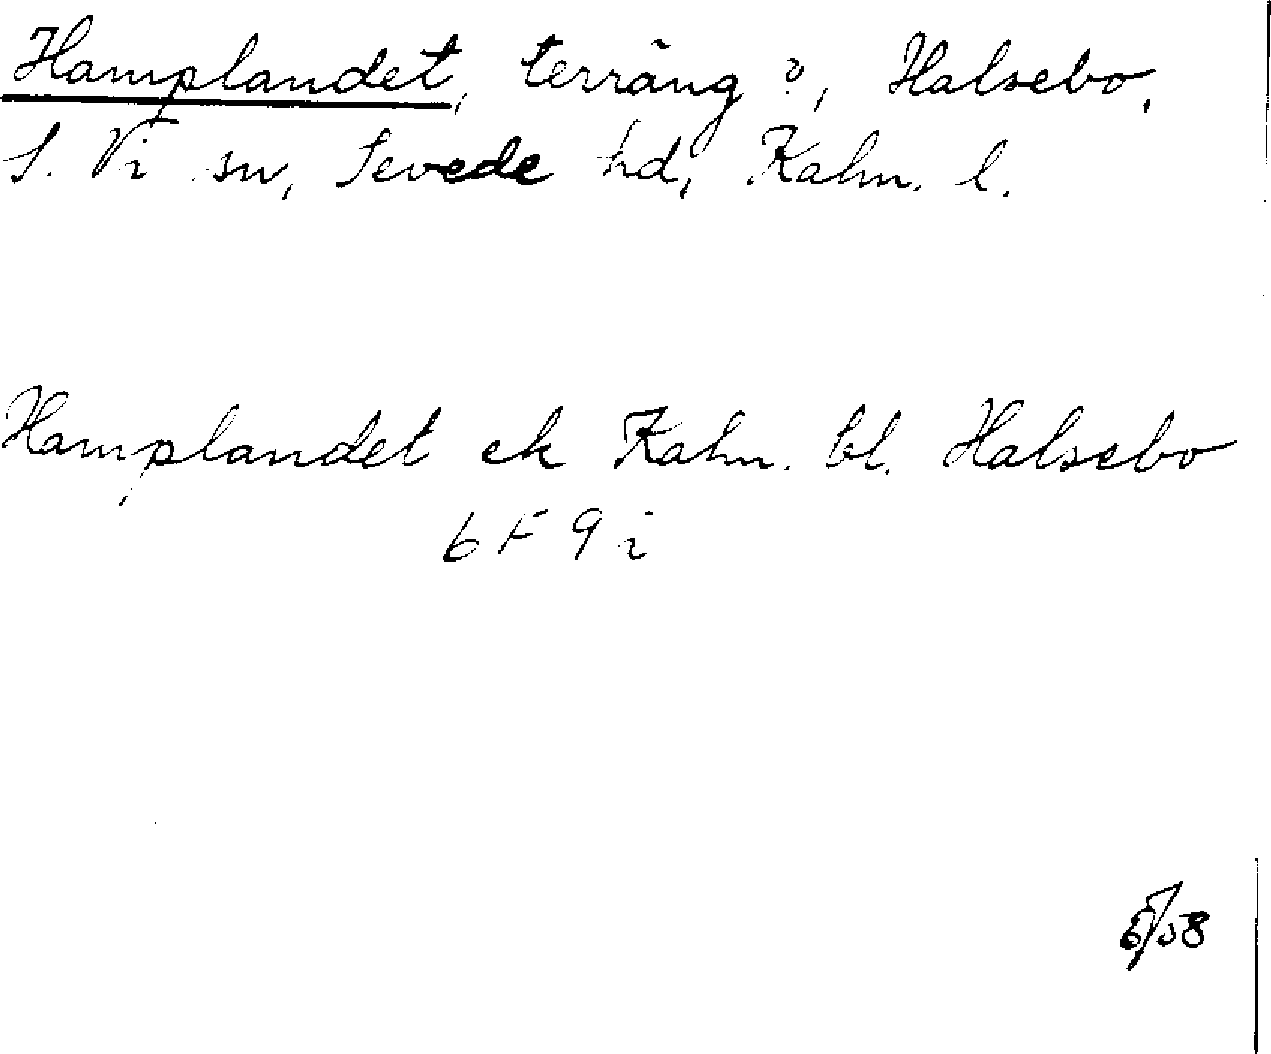 Hamplandet, terräng?, Halsebo,
S. Vi sn, Sevede hd, Kalm. l.
Hamplandet ek Kalm. bl. Halsebo
6 F 9 i